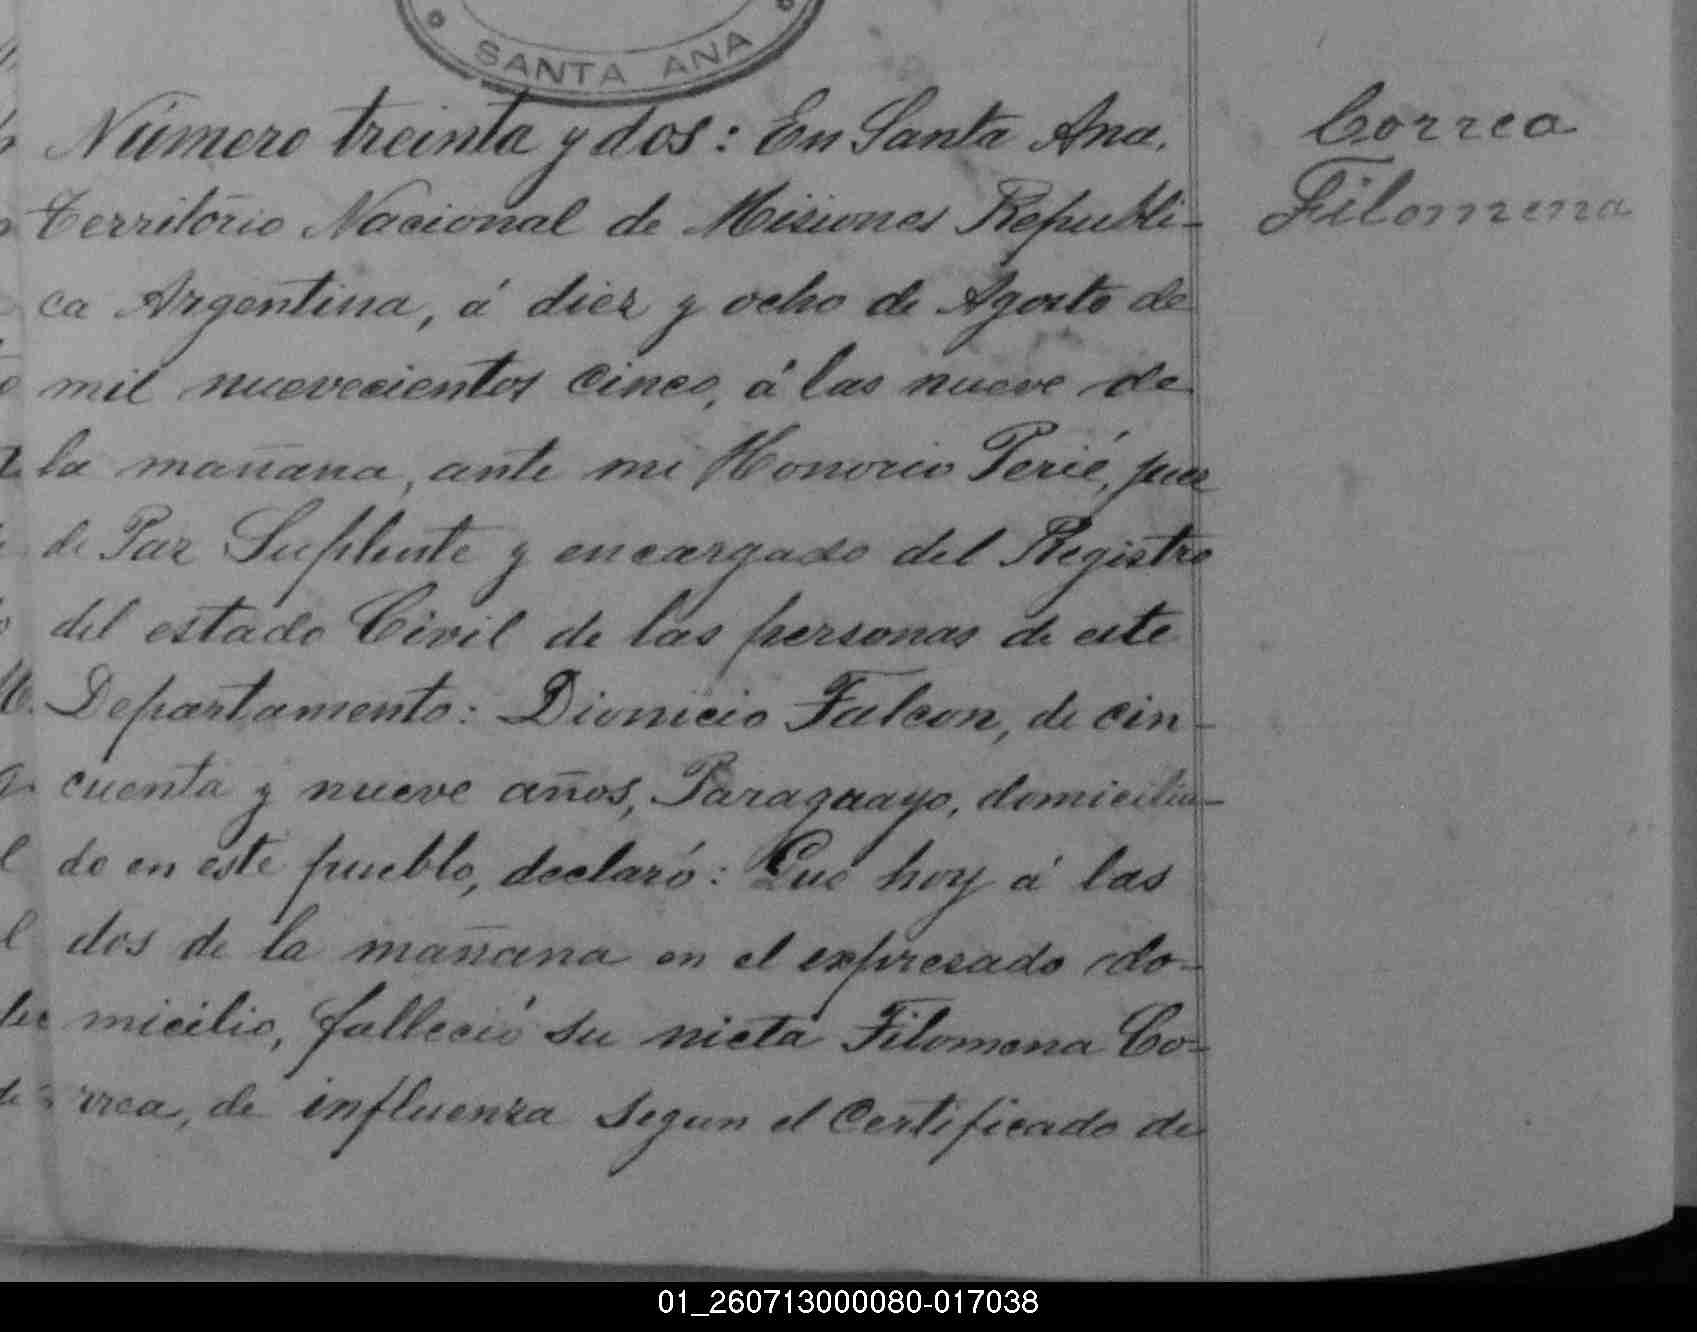 SANTA ANA
Número treinta y dos: En Santa Ana,
Territorio Nacional de Misiones Republi-
ca Argentina, á diez y ocho de Agosto de
mil nuevecientos cinco, á las nueve de
la mañana, ante mi Honorio Perié, juez
de Paz Suplente y encargado del Registro
del estado Civil de las personas de este
Departamento: Dionicio Falcon, de cin-
cuenta y nueve años, Paraguayo, domicilia-
do en este pueblo, declaró: Que hoy á las
dos de la mañana en el expresado do-
micilio, falleció su nieta Filomena Co-
rrea, de influenza segun el Certificado de
Correa
Filomena
01_260713000080-017038